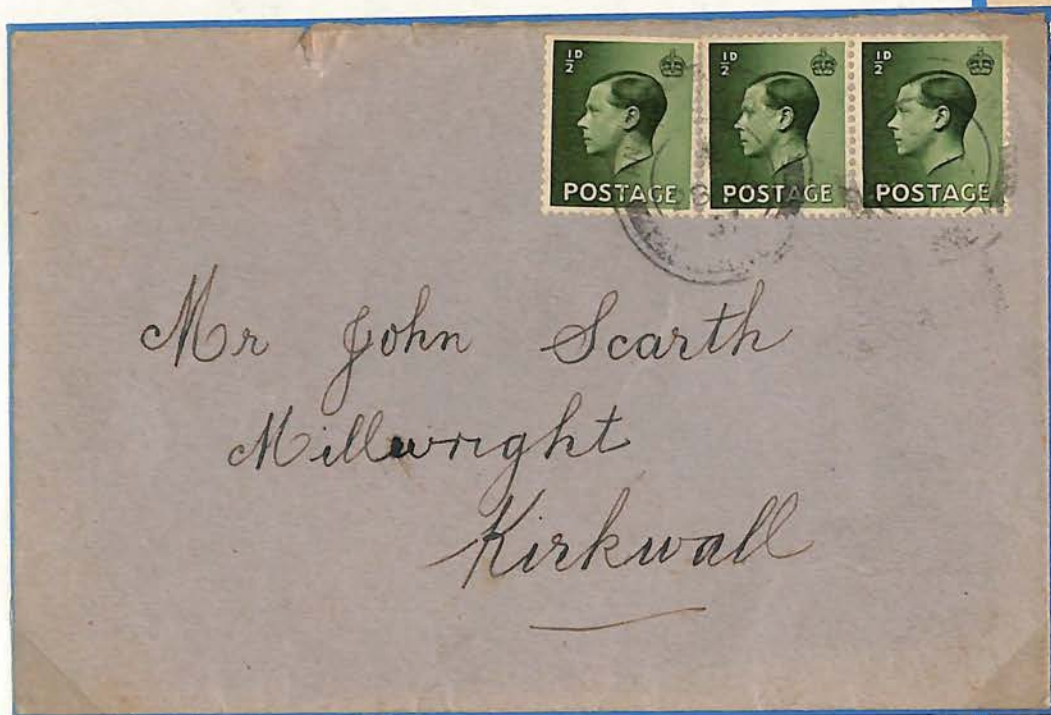 ½D ½D ½D
POSTAGE POSTAGE POSTAGE
Mr John Scarth
Millwright
Kirkwall